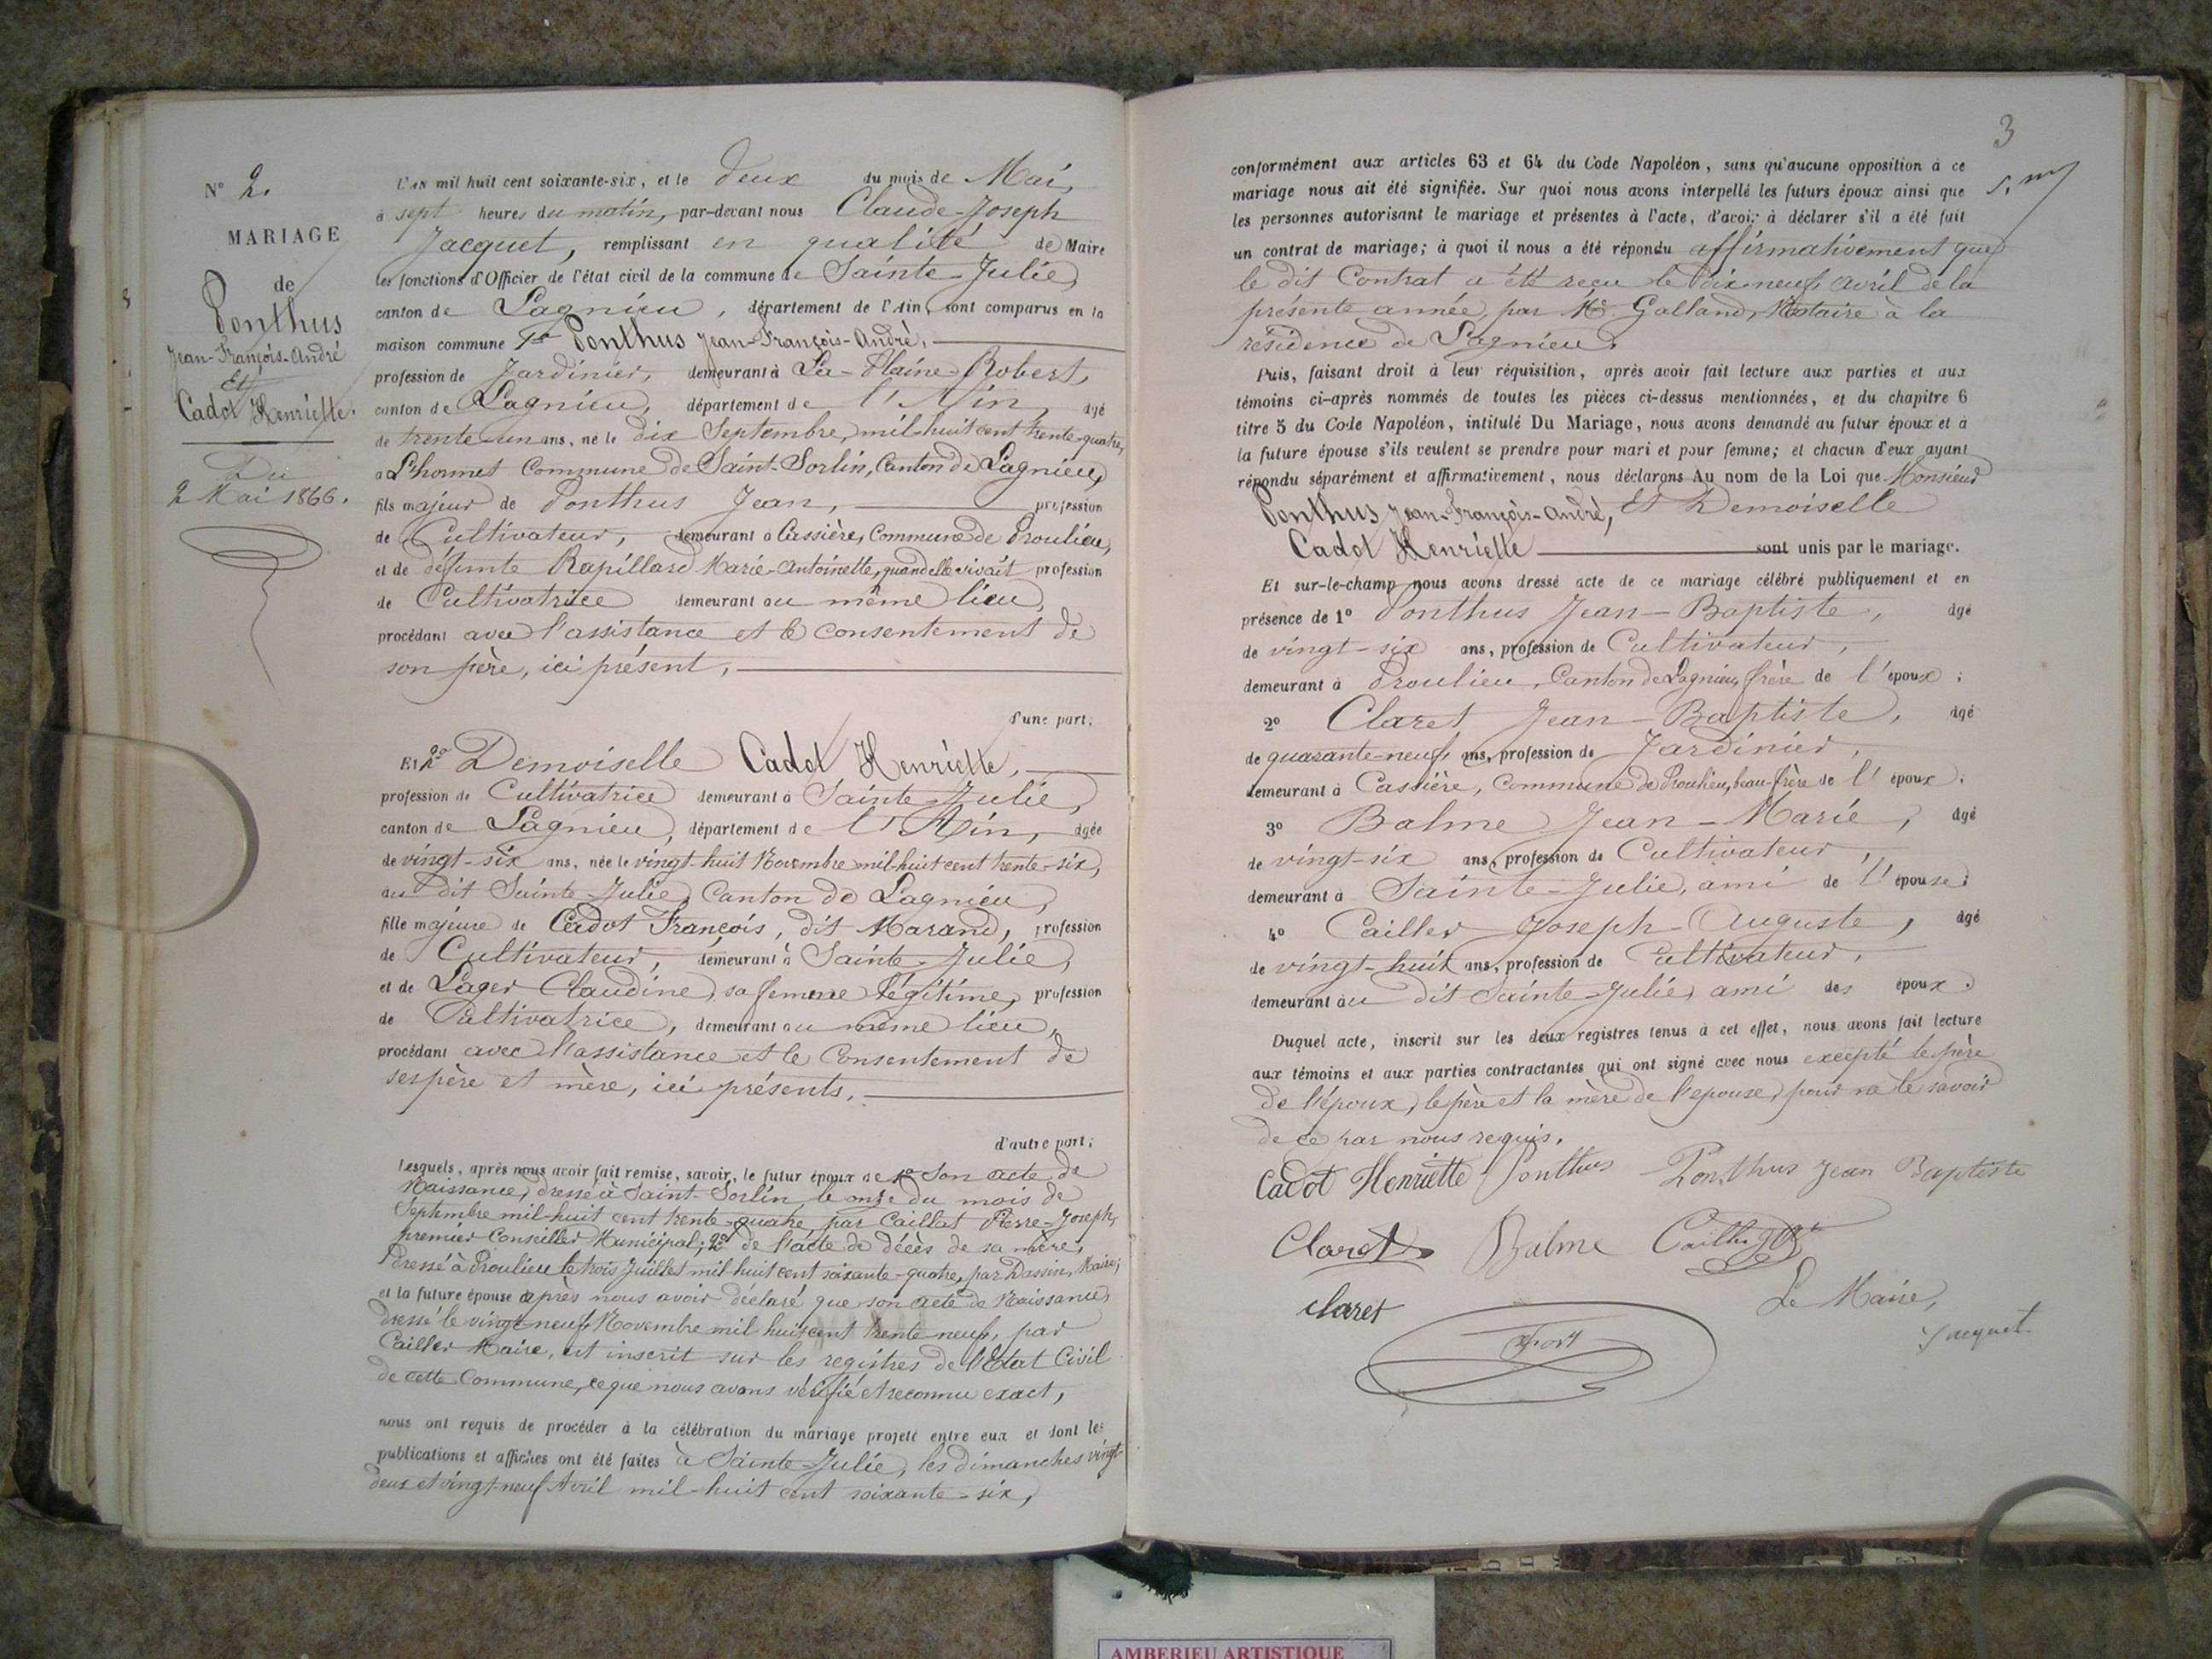 N° 2.
MARIAGE
de
Ponthus
Jean-François-André
Et
Cadot Henriette.
Du
2 Mai 1866.
L'AN mil huit cent soixante-six, et le deux du mois de Mai,
à sept heures du matin, par-devant nous Claude-Joseph
Jacquet, remplissant en qualité de Maire
les fonctions d'Officier de l'état civil de la commune de Sainte-Julie,
canton de Lagnieu, département de l'Ain, sont comparus en la
maison commune 1° Ponthus Jean-François-André,
profession de Jardinier, demeurant à La-Plaine-Robert,
canton de Lagnieu, département de l'Ain, âgé
de trente-un ans, né le dix Septembre, mil-huit cent trente-quatre,
à L'hormet Commune de Saint-Sorlin, Canton de Lagnieu,
fils majeur de Ponthus Jean, profession
de Cultivateur, demeurant à Cassière, Commune de Proulieu,
et de défunte Rapillard Marie-Antoinette, quand elle vivait profession
de Cultivatrice demeurant au même lieu,
procédant avec l'assistance et le consentement de
son père, ici présent,
d'une part;
Et 2° Demoiselle Cadot Henriette,
profession de Cultivatrice demeurant à Sainte-Julie,
canton de Lagnieu, département de l'Ain, âgée
de vingt-six ans, née le vingt-huit Novembre mil-huit cent trente-six,
au dit Sainte-Julie, Canton de Lagnieu,
fille majeure de Cadot François, dit Marand, profession
de Cultivateur, demeurant à Sainte-Julie,
et de Lager Claudine, sa femme légitime, profession
de Cultivatrice, demeurant au même lieu,
procédant avec l'assistance et le Consentement de
ses père et mère, ici présents,
d'autre part;
Lesquels, après nous avoir fait remise, savoir, le futur époux de 1° Son acte de
Naissance, dressé à Saint-Sorlin, le onze du mois de
Septembre mil-huit cent trente-quatre, par Caillat Pierre-Joseph,
premier Conseiller Municipal; 2° de l'acte de décès de sa mère,
Dressé à Proulieu le trois Juillet mil huit cent soixante-quatre, par Dassin, Maire;
et la future épouse après nous avoir déclaré que son acte de Naissance,
dressé le vingt-neuf Novembre mil huit cent trente neuf, par
Cailler Maire, est inscrit sur les registres de l'Etat Civil
de cette Commune, ce que nous avons vérifié et reconnu exact,
nous ont requis de procéder à la célébration du mariage projeté entre eux et dont les
publications et affiches ont été faites à Sainte-Julie, les dimanches vingt-
deux et vingt-neuf Avril mil-huit cent soixante-six,
3
conformément aux articles 63 et 64 du Code Napoléon, sans qu'aucune opposition à ce
mariage nous ait été signifiée. Sur quoi nous avons interpellé les futurs époux ainsi que
les personnes autorisant le mariage et présentes à l'acte, d'avoir à déclarer s'il a été fait
un contrat de mariage; à quoi il nous a été répondu affirmativement que
le dit Contrat a été reçu le dix-neuf avril de la
présente année, par Me Galland, Notaire à la
résidence de Lagnieu.
Puis, faisant droit à leur réquisition, après avoir fait lecture aux parties et aux
témoins ci-après nommés de toutes les pièces ci-dessus mentionnées, et du chapitre 6
titre 5 du Code Napoléon, intitulé Du Mariage, nous avons demandé au futur époux et à
la future épouse s'ils veulent se prendre pour mari et pour femme; et chacun d'eux ayant
répondu séparément et affirmativement, nous déclarons Au nom de la Loi que Monsieur
Ponthus Jean-François-André, Et Demoiselle
Cadot Henriette sont unis par le mariage.
Et sur-le-champ nous avons dressé acte de ce mariage célébré publiquement et en
présence de 1° Ponthus Jean-Baptiste, âgé
de vingt-six ans, profession de Cultivateur,
demeurant à Proulieu, Canton de Lagnieu, frère de l'époux;
2° Claret Jean-Baptiste, âgé
de quarante-neuf ans, profession de Jardinier,
demeurant à Cassière, Commune de Proulieu, beau-frère de l'époux;
3° Balme Jean-Marie, âgé
de vingt-six ans, profession de Cultivateur,
demeurant à Sainte-Julie, ami de l'épouse;
4° Cailler Joseph-Auguste, âgé
de vingt-huit ans, profession de Cultivateur,
demeurant au dit Sainte-Julie, ami des époux.
Duquel acte, inscrit sur les deux registres tenus à cet effet, nous avons fait lecture
aux témoins et aux parties contractantes qui ont signé avec nous excepté le père
de l'époux, le père et la mère de l'épouse, pour ne le savoir
de ce par nous requis.
Cadot Henriette Ponthus Ponthus Jean Baptiste
Claret Balme
claret
Le Maire,
Jacquet
AMBERIEU ARTISTIQUE